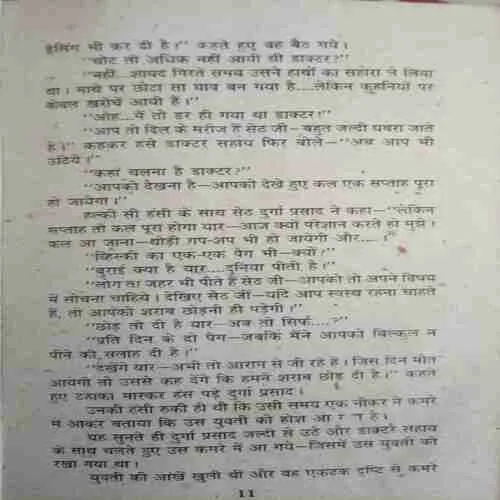 ड्रेसिंग भी कर दी है।" कहते हुए वह बैठ गये।
"चोट तो अधिक नहीं आयी थी डाक्टर?"
"नहीं...शायद गिरते समय उसने हाथों का सहारा ले लिया
था। माथे पर छोटा सा घाव बन गया है....लेकिन कुहनियों पर
केवल खरोंचें आयी हैं।"
"ओह...मैं तो डर ही गया था डाक्टर!"
"आप तो दिल के मरीज हैं सेठ जी—बहुत जल्दी घबरा जाते
हैं।" कहकर हंसे डाक्टर सहाय फिर बोले—"अब आप भी
उठिये।"
"कहां चलना है डाक्टर?"
"आपको देखना है—आपको देखे हुए कल एक सप्ताह पूरा
हो जायेगा।"
हल्की सी हंसी के साथ सेठ दुर्गा प्रसाद ने कहा—"लेकिन
सप्ताह तो कल पूरा होगा यार—आज क्यों परेशान करते हो मुझे।
कल आ जाना—थोड़ी गप-शप भी हो जायेगी और....।"
"व्हिस्की का एक-एक पैग भी—क्यों?"
"बुराई क्या है यार....दुनिया पीती है।"
"लोग तो जहर भी पीते हैं सेठ जी—आपको तो अपने विषय
में सोचना चाहिये। देखिए सेठ जी—यदि आप स्वस्थ रहना चाहते
हैं, तो आपको शराब छोड़नी ही पड़ेगी।"
"छोड़ तो दी है यार—अब तो सिर्फ....?"
"प्रति दिन के दो पैग—जबकि मैंने आपको बिल्कुल न
पीने की सलाह दी है।"
"देखेंगे यार—अभी तो आराम से जी रहे हैं। जिस दिन मौत
आयेगी तो उससे कह देंगे कि हमने शराब छोड़ दी है।" कहते
हुए ठहाका मारकर हंस पड़े दुर्गा प्रसाद।
उनकी हंसी रुकी ही थी कि उसी समय एक नौकर ने कमरे
में आकर बताया कि उस युवती को होश आ है।
यह सुनते ही दुर्गा प्रसाद जल्दी से उठे और डाक्टर सहाय
के साथ चलते हुए उस कमरे में आ गये—जिसमें उस युवती को
रखा गया था।
युवती की आंखें खुली थीं और वह एकटक दृष्टि से कमरे
11